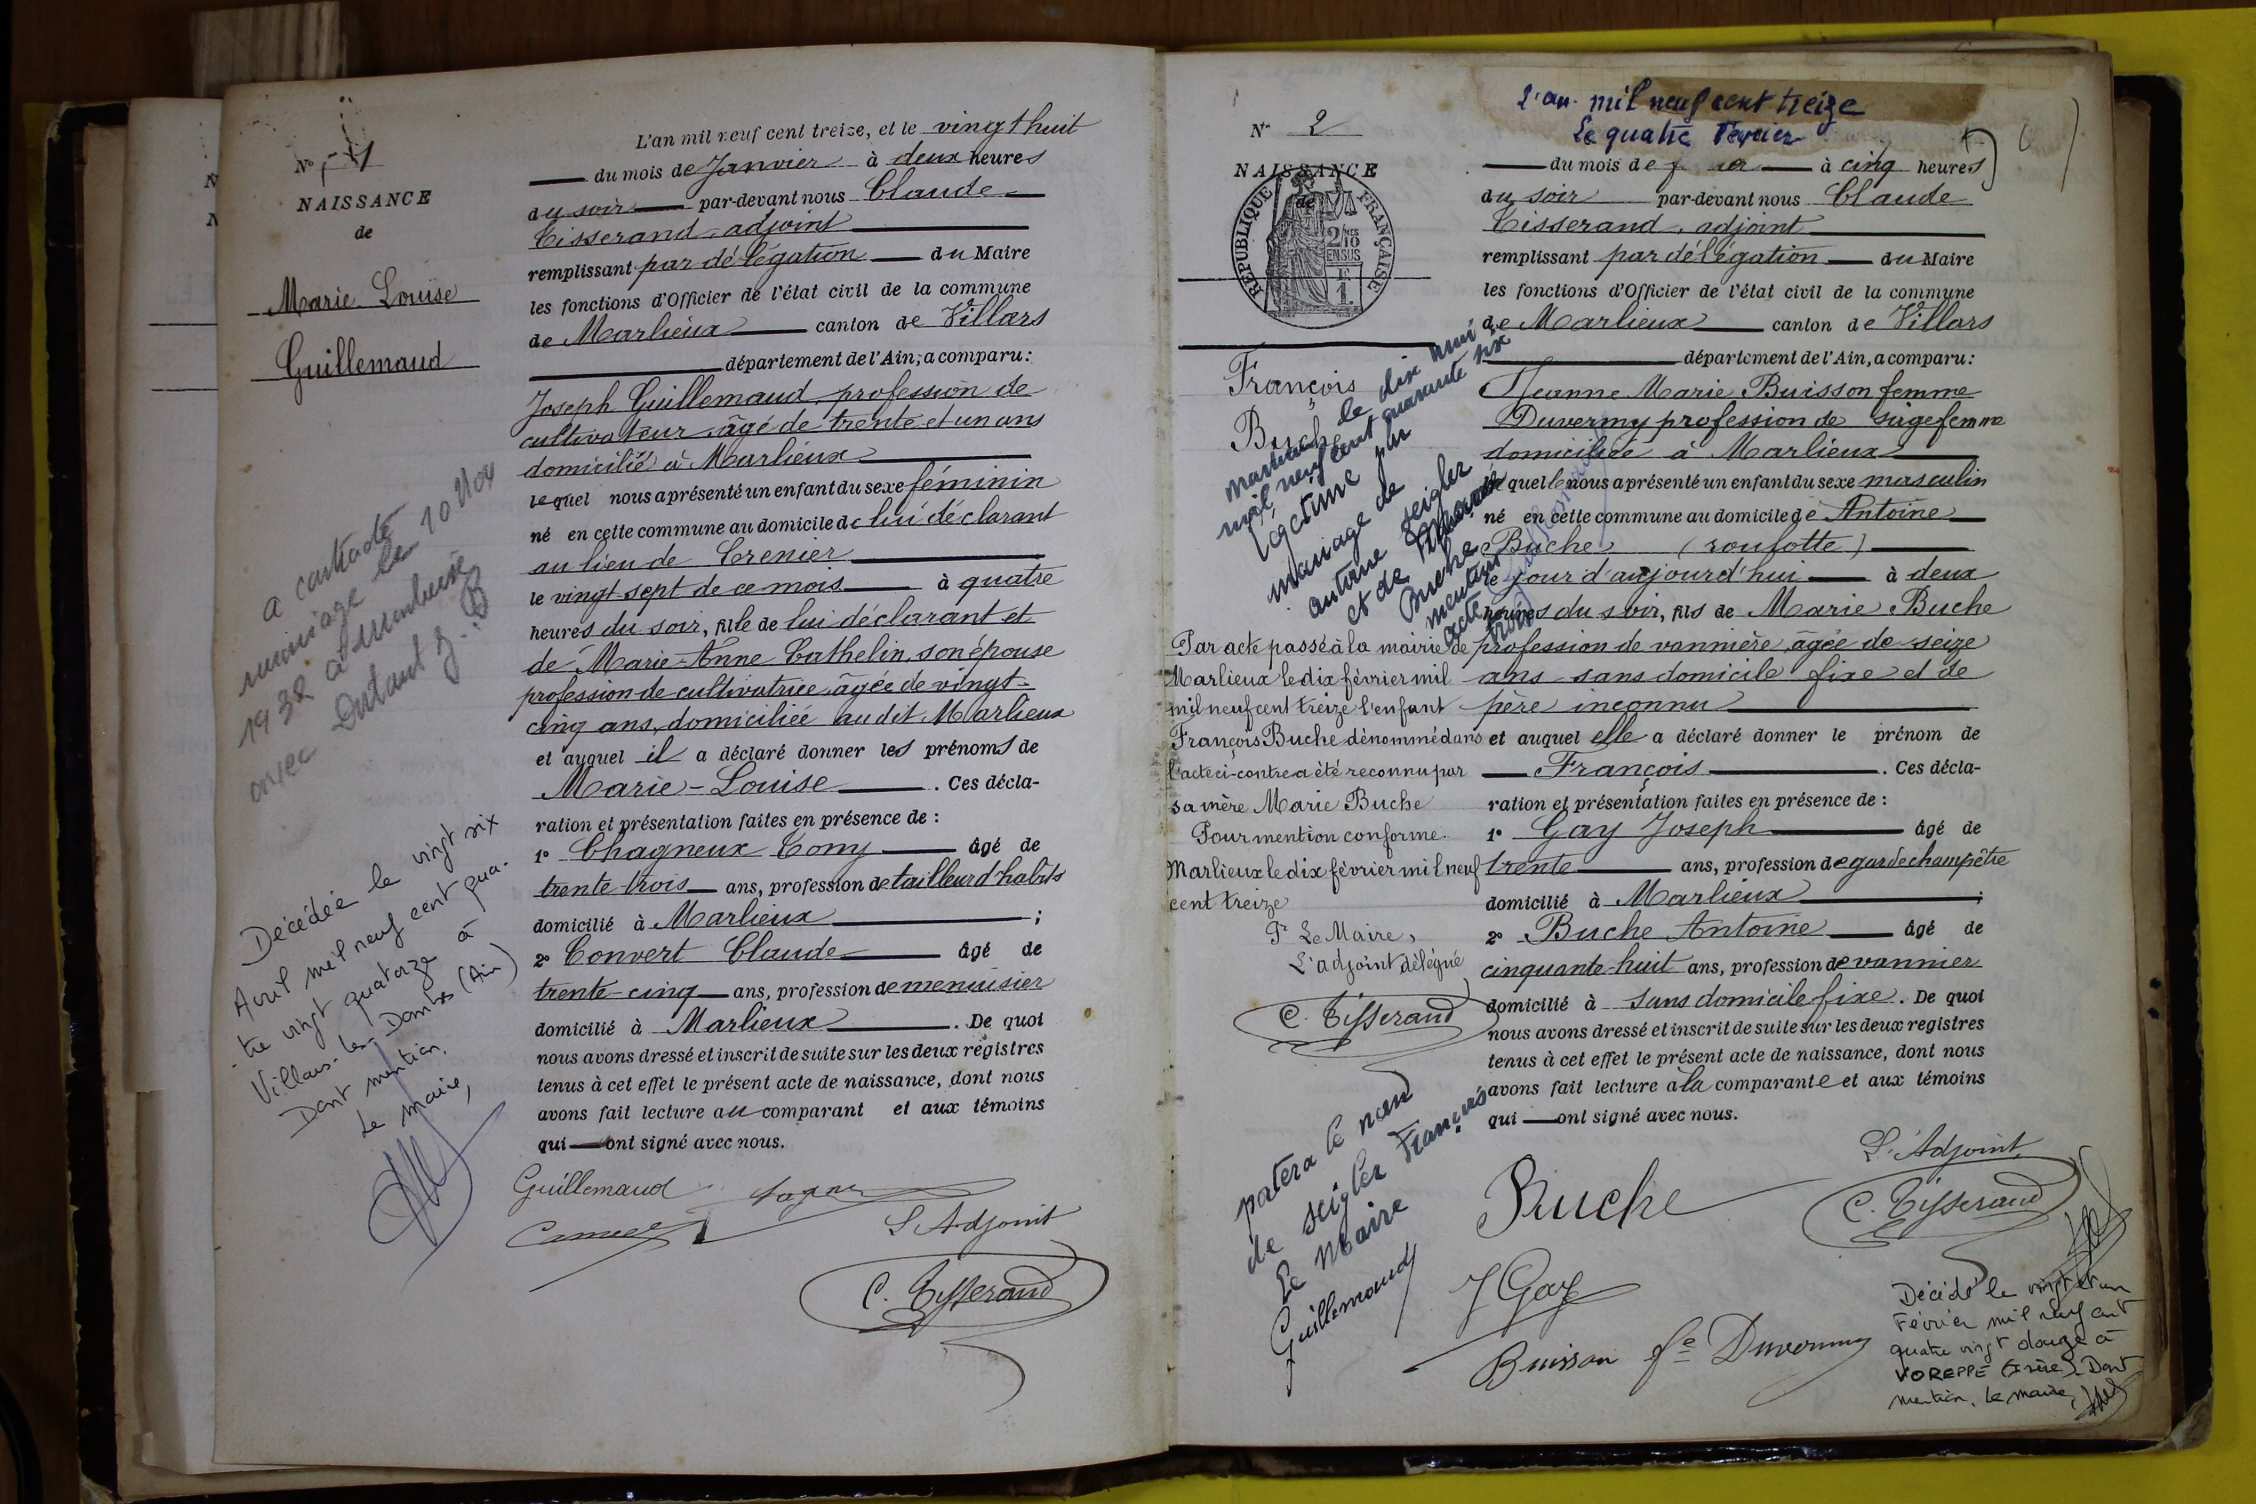 N° 1
NAISSANCE
de
Marie Louise
Guillemaud
a contracté
mariage le 10 Nov
1932 à
avec Dutant J.
Décédée le vingt six
Avril mil neuf cent qua-
tre vingt quatorze à
Villars-les-Dombes (Ain)
Dont mention.
Le maire,
L'an mil neuf cent treize, et le vingt huit
du mois de Janvier à deux heures
du soir par-devant nous Claude
Tisserand, adjoint
remplissant par délégation du Maire
les fonctions d'Officier de l'état civil de la commune
de Marlieux canton de Villars
département de l'Ain, a comparu:
Joseph Guillemaud, profession de
cultivateur, âgé de trente et un ans
domicilié à Marlieux
lequel nous a présenté un enfant du sexe féminin
né en cette commune au domicile de lui déclarant
au lieu de Crenier
le vingt-sept de ce mois à quatre
heures du soir, fille de lui déclarant et
de Marie-Anne Cathelin, son épouse
profession de cultivatrice, âgée de vingt-
cinq ans, domiciliée audit Marlieux
et auquel il a déclaré donner les prénoms de
Marie-Louise. Ces décla-
ration et présentation faites en présence de :
1° Chagneux Tony âgé de
trente-trois ans, profession de tailleur d'habits
domicilié à Marlieux ;
2° Convert Claude âgé de
trente-cinq ans, profession de menuisier
domicilié à Marlieux. De quoi
nous avons dressé et inscrit de suite sur les deux registres
tenus à cet effet le présent acte de naissance, dont nous
avons fait lecture au comparant et aux témoins
qui ont signé avec nous.
Guillemaud
L'Adjoint
C. Tisserand
N° 2
NAISSANCE
de
RÉPUBLIQUE FRANÇAISE
2/10 EN SUS
François
Buche
le dix mai
mil neuf cent quarante six
légitimé par
mariage de
antoine seigler
et de Marie
Buche
mention
acte
Par acte passé à la mairie de
Marlieux le dix février mil
mil neuf cent treize l'enfant
François Buche dénommé dans
l'acte ci-contre a été reconnu par
sa mère Marie Buche
Pour mention conforme.
Marlieux le dix février mil neuf
cent treize
Pr Le Maire,
L'adjoint délégué
C. Tisserand
portera le nom
de seigler François
Le Maire
Guillemaud
L'an mil neuf cent treize
Le quatre Février
du mois de à cinq heures
du soir par-devant nous Claude
Tisserand, adjoint
remplissant par délégation du Maire
les fonctions d'Officier de l'état civil de la commune
de Marlieux canton de Villars
département de l'Ain, a comparu:
Jeanne Marie Buisson femme
Duvermy profession de sage femme
domiciliée à Marlieux
lequelle nous a présenté un enfant du sexe masculin
né en cette commune au domicile de Antoine
Buche (roulotte)
le jour d'aujourd'hui à deux
heures du soir, fils de Marie Buche
profession de vannière, âgée de seize
ans sans domicile fixe et de
père inconnu
et auquel elle a déclaré donner le prénom de
François. Ces décla-
ration et présentation faites en présence de :
1° Gay Joseph âgé de
trente ans, profession de garde champêtre
domicilié à Marlieux ;
2° Buche Antoine âgé de
cinquante-huit ans, profession de vannier
domicilié à sans domicile fixe. De quoi
nous avons dressé et inscrit de suite sur les deux registres
tenus à cet effet le présent acte de naissance, dont nous
avons fait lecture à la comparante et aux témoins
qui ont signé avec nous.
L'Adjoint
Buche
C. Tisserand
J Gay
Buisson fe Duvermy
Décédé le vingt et un
Février mil neuf cent
quatre vingt douze à
VOREPPE (Isère). Dont
mention. Le maire,